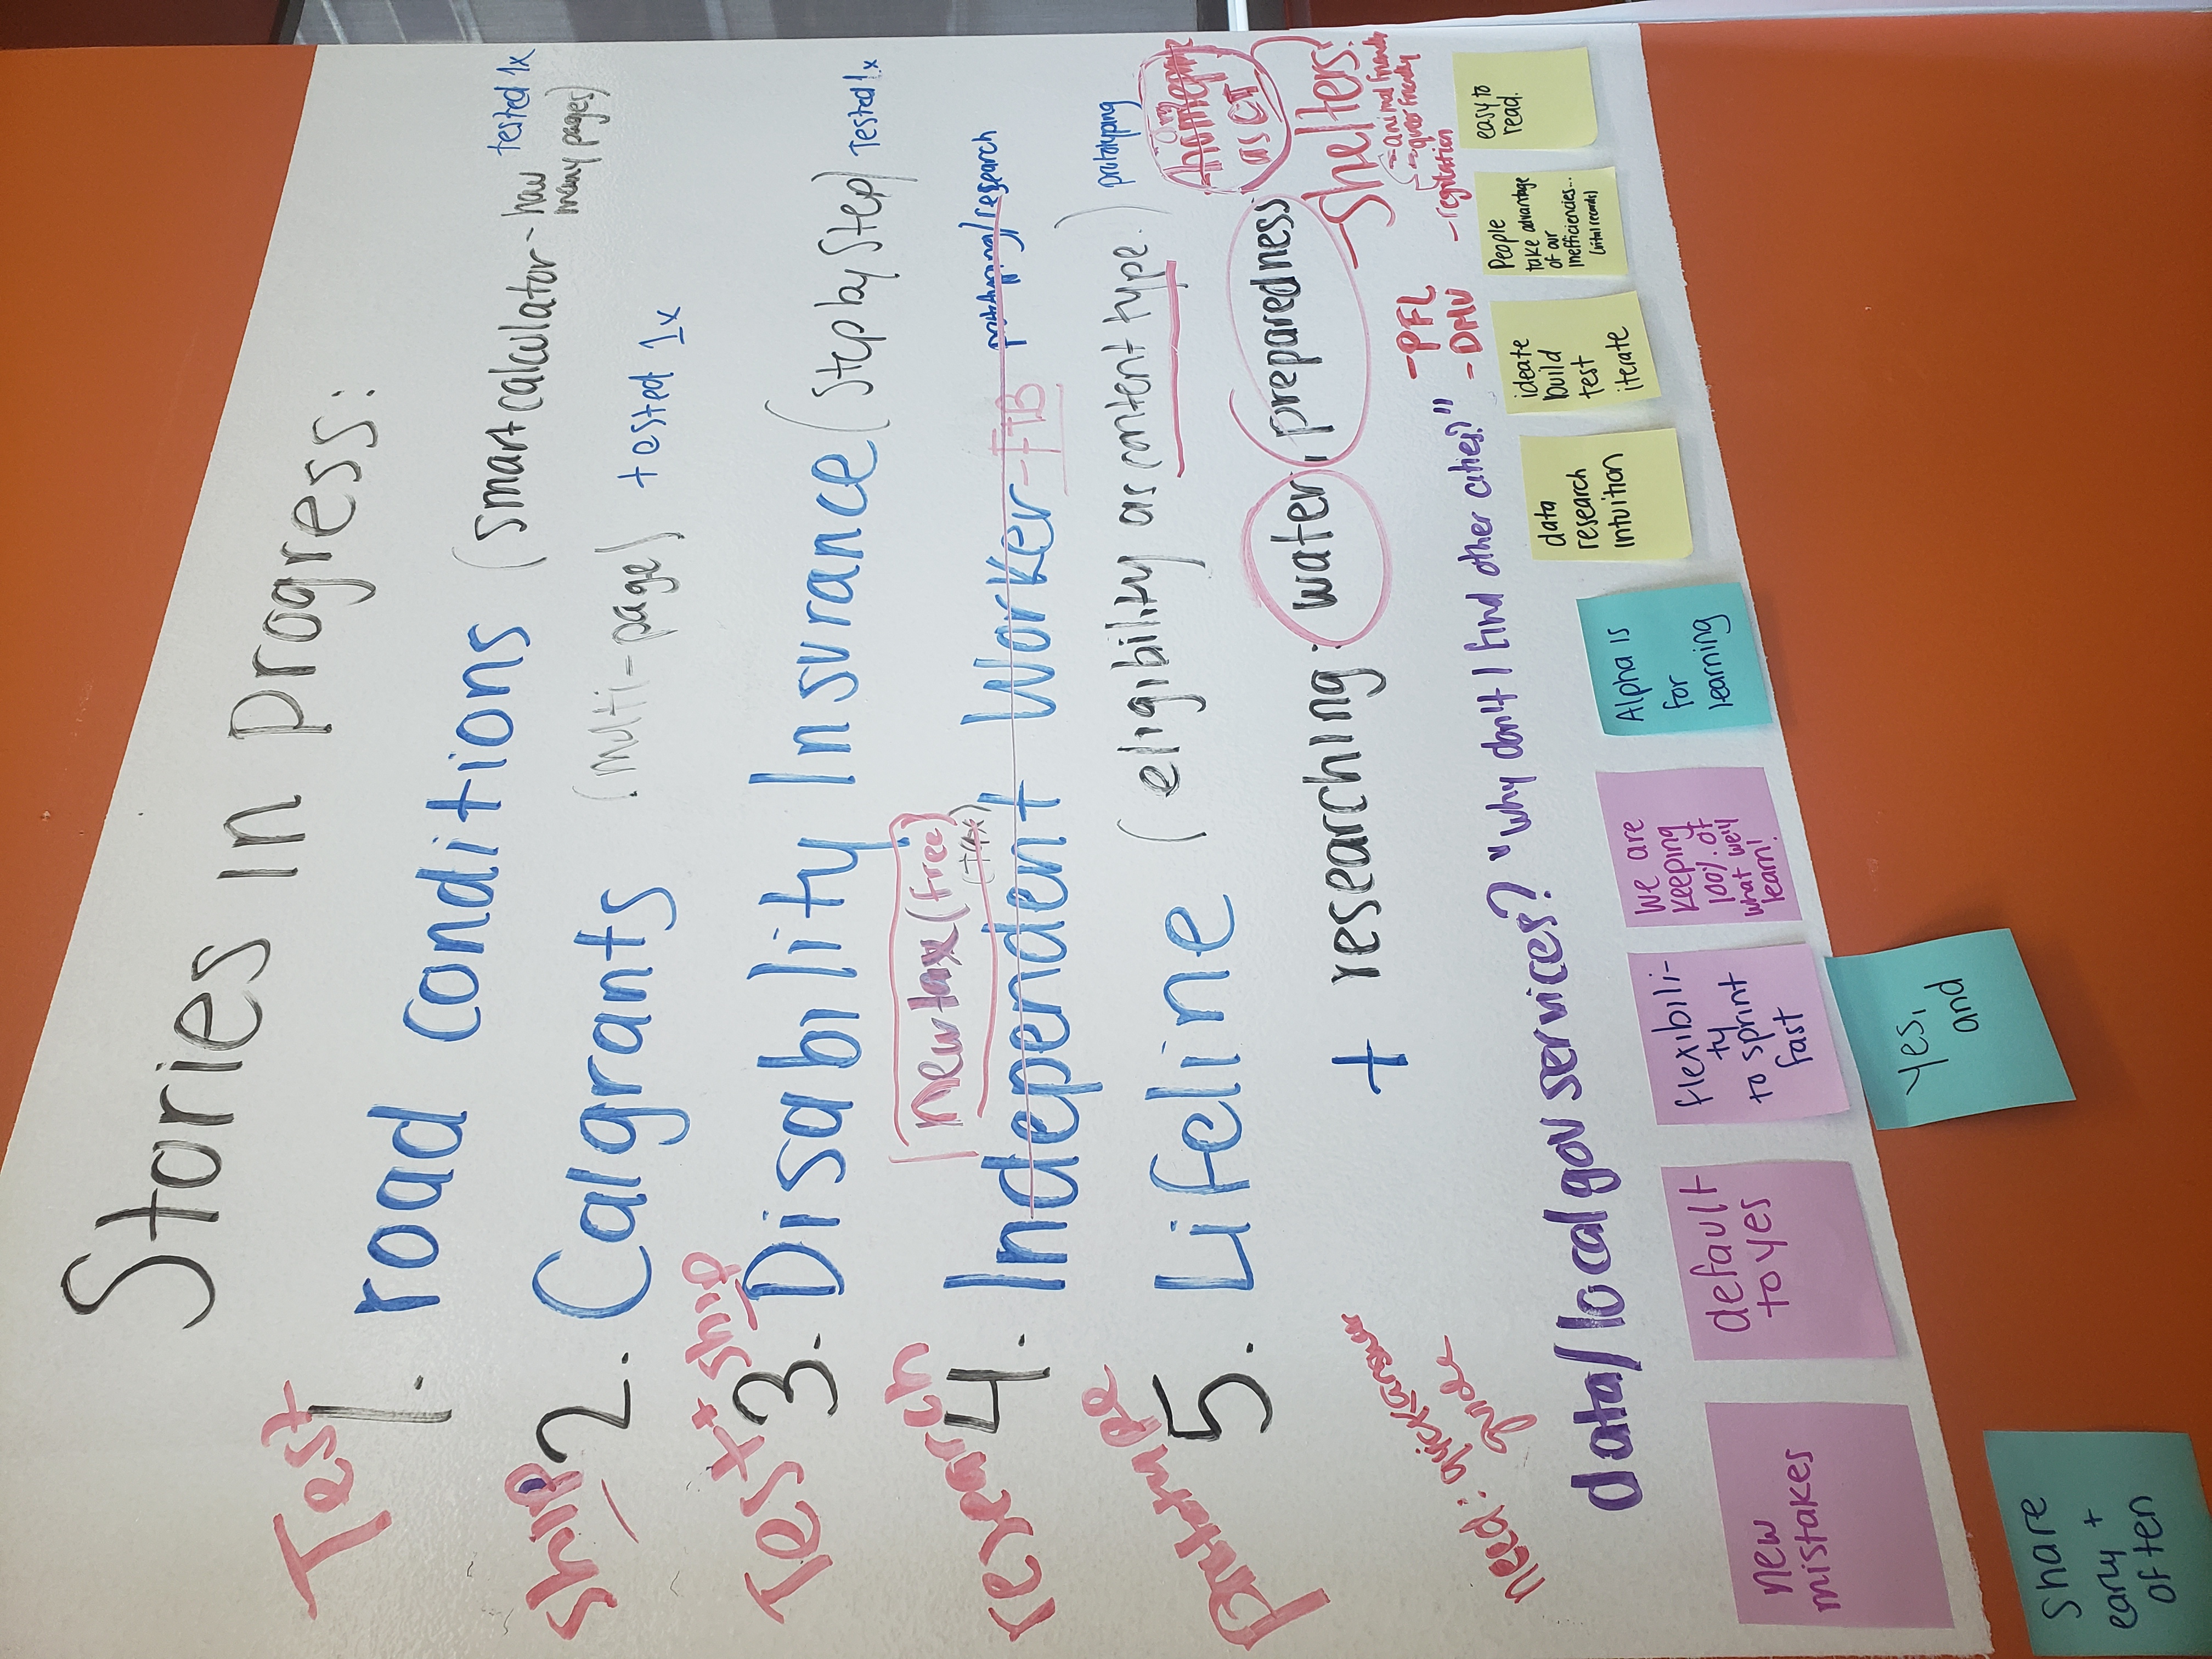 Stories in progress:
Test
1. road conditions (smart calculator - how many pages) tested 1x
ship
2. Calgrants (multi-page) tested 1x
Test + ship
3. Disability Insurance (Step by Step) Tested 1x
new tax (free)
(tax)
research
4. Independent Worker - FTB prototyping/research
prototype
5. Lifeline (eligibility as content type.) prototyping
homepage
as CT
+ researching: water, preparedness
- Shelters?
- animal friendly
- queer friendly
need: quick answer
guide
- PFL
- DMV
data/local gov services? "Why don't I find other cities?"
new
mistakes
default
to yes
flexibili-
ty
to sprint
fast
We are
keeping
100% of
what we'll
learn!
Alpha is
for
learning
data
research
intuition
ideate
build
test
iterate
People
take advantage
of our
inefficiencies...
(vital records)
easy to
read.
Yes,
and
Share
early +
often